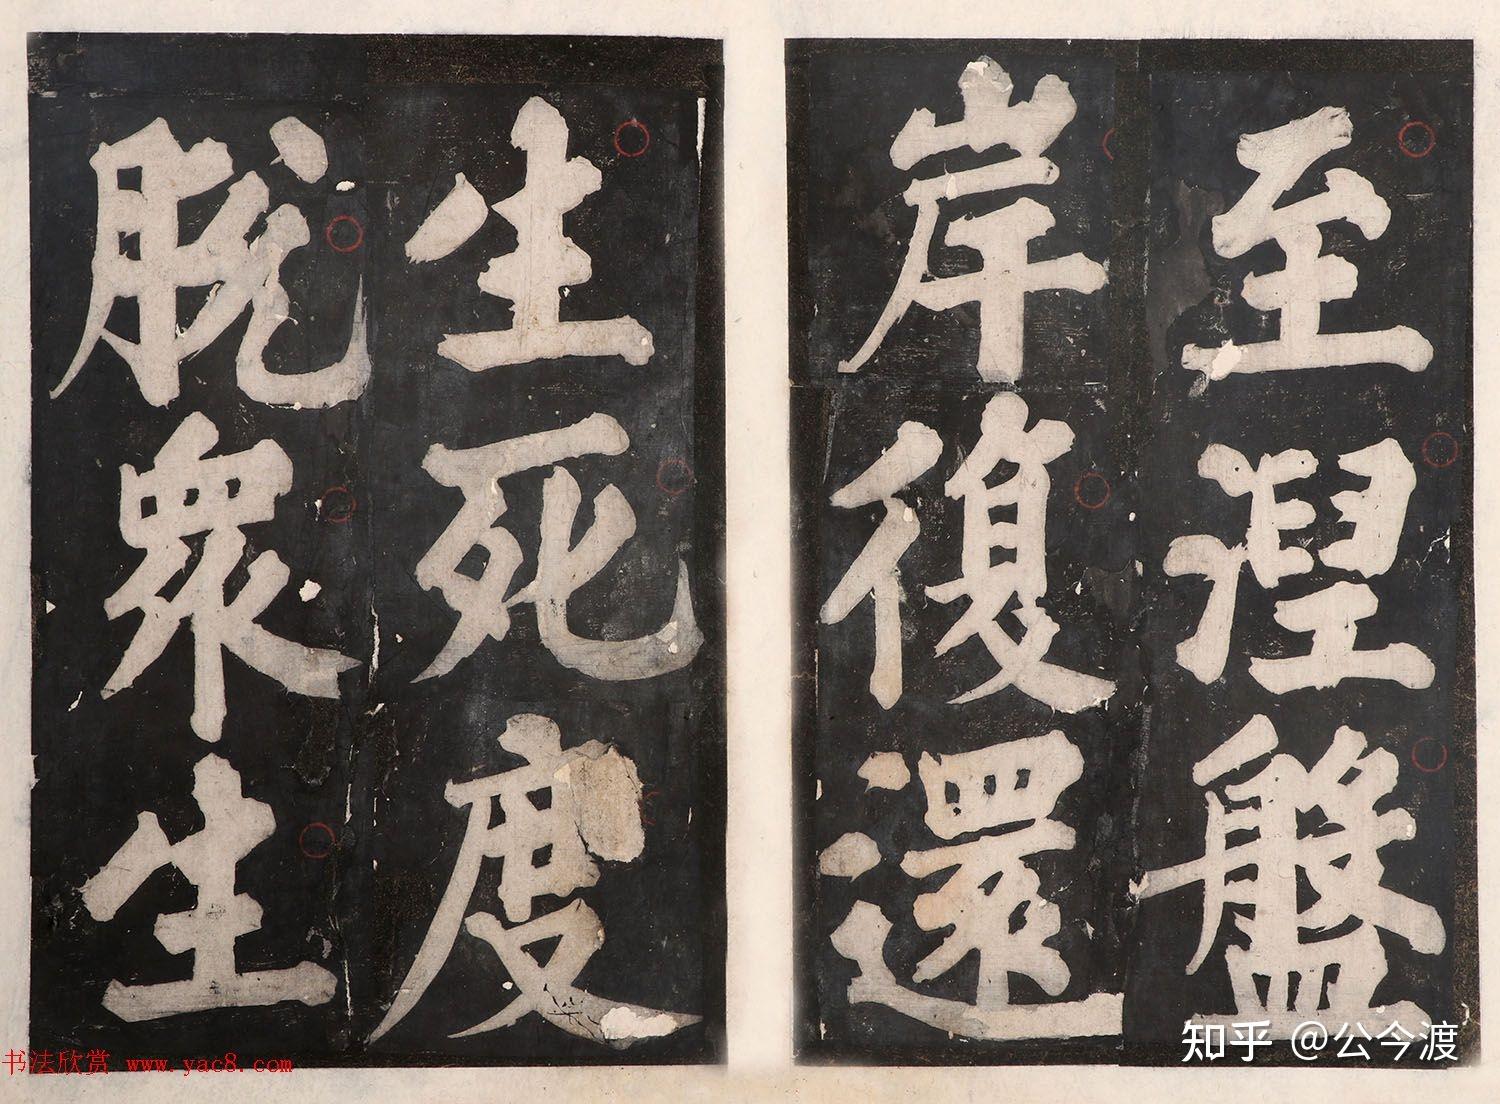 至湼盤
岸復還
生死度
脫眾生
书法欣赏 www.yac8.com
知乎 @公今渡